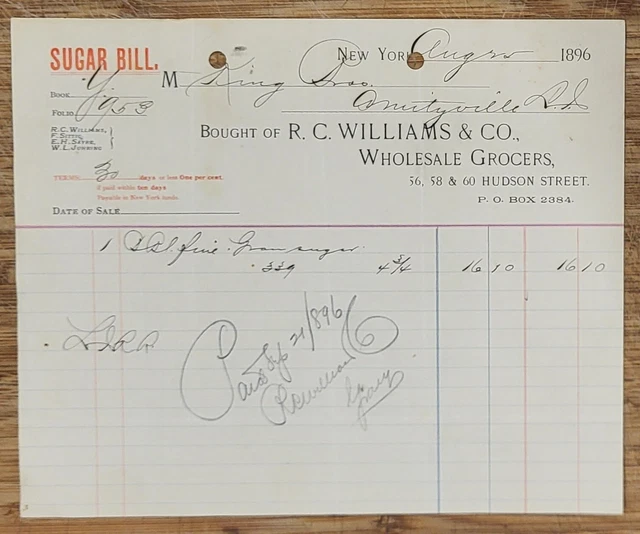 SUGAR BILL.
New York Aug 1896
Book
M King Bros.
Folio 953
Amityville L.I.
R. C. Williams,
F. Sittig,
E. H. Sayre,
W. L. Juhring
Bought of R. C. WILLIAMS & CO.,
Wholesale Grocers,
56, 58 & 60 HUDSON STREET.
P. O. BOX 2384.
TERMS 30 days or less One per cent.
if paid within ten days
Payable in New York funds.
Date of Sale
1 Bbl fine Gran sugar
339 4 3/4 16 10 16 10
L I R R
Paid Sep 21/896
RC Williams & Co